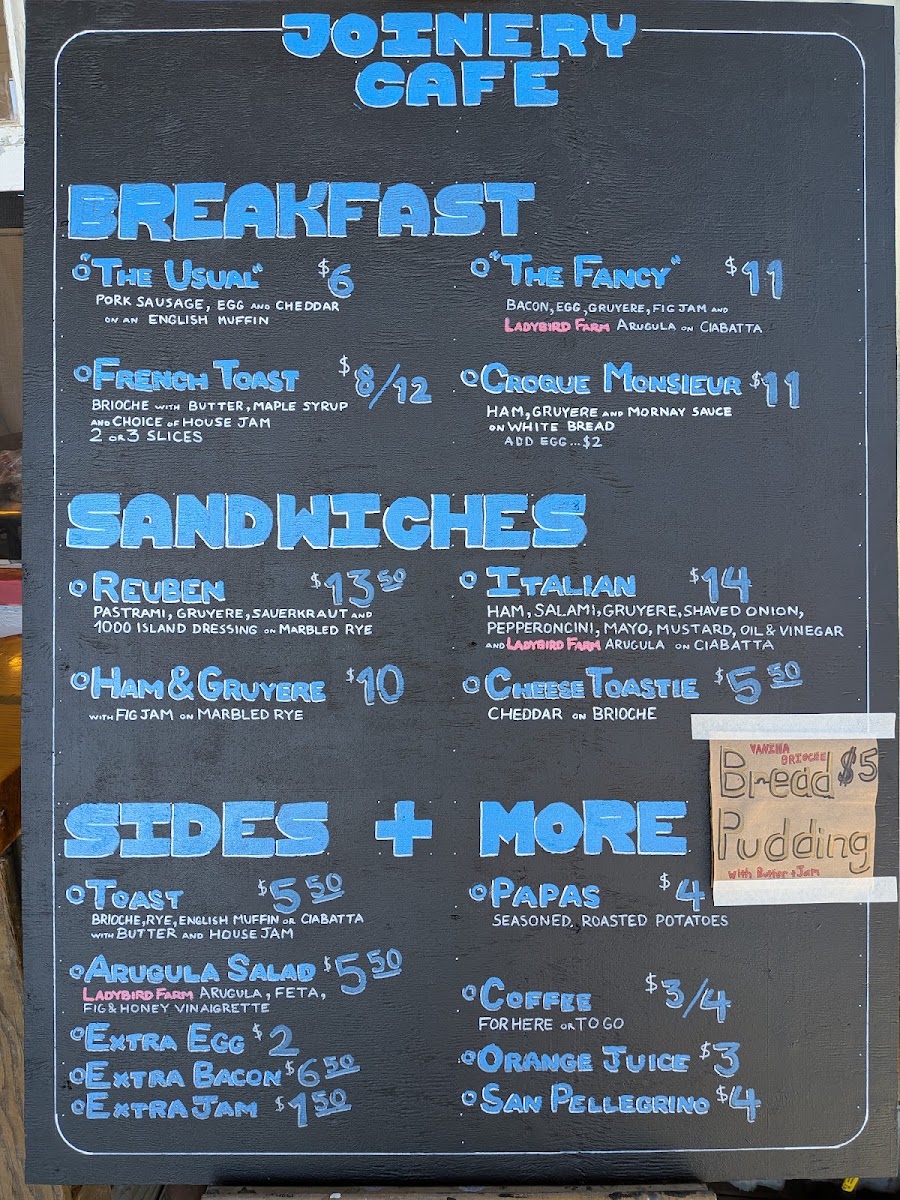 JOINERY
CAFE
BREAKFAST
"THE USUAL" $6
PORK SAUSAGE, EGG AND CHEDDAR
ON AN ENGLISH MUFFIN
"THE FANCY" $11
BACON, EGG, GRUYERE, FIG JAM AND
LADYBIRD FARM ARUGULA ON CIABATTA
FRENCH TOAST $8/12
BRIOCHE WITH BUTTER, MAPLE SYRUP
AND CHOICE OF HOUSE JAM
2 OR 3 SLICES
CROQUE MONSIEUR $11
HAM, GRUYERE AND MORNAY SAUCE
ON WHITE BREAD
ADD EGG...$2
SANDWICHES
REUBEN $13 50
PASTRAMI, GRUYERE, SAUERKRAUT AND
1000 ISLAND DRESSING ON MARBLED RYE
ITALIAN $14
HAM, SALAMI, GRUYERE, SHAVED ONION,
PEPPERONCINI, MAYO, MUSTARD, OIL & VINEGAR
AND LADYBIRD FARM ARUGULA ON CIABATTA
HAM & GRUYERE $10
WITH FIG JAM ON MARBLED RYE
CHEESE TOASTIE $5 50
CHEDDAR ON BRIOCHE
VANILLA
BRIOCHE
Bread $5
Pudding
With Butter + Jam
SIDES + MORE
TOAST $5 50
BRIOCHE, RYE, ENGLISH MUFFIN OR CIABATTA
WITH BUTTER AND HOUSE JAM
PAPAS $4
SEASONED, ROASTED POTATOES
ARUGULA SALAD $5 50
LADYBIRD FARM ARUGULA, FETA,
FIG & HONEY VINAIGRETTE
EXTRA EGG $2
EXTRA BACON $6 50
EXTRA JAM $1 50
COFFEE $3/4
FOR HERE OR TO GO
ORANGE JUICE $3
SAN PELLEGRINO $4